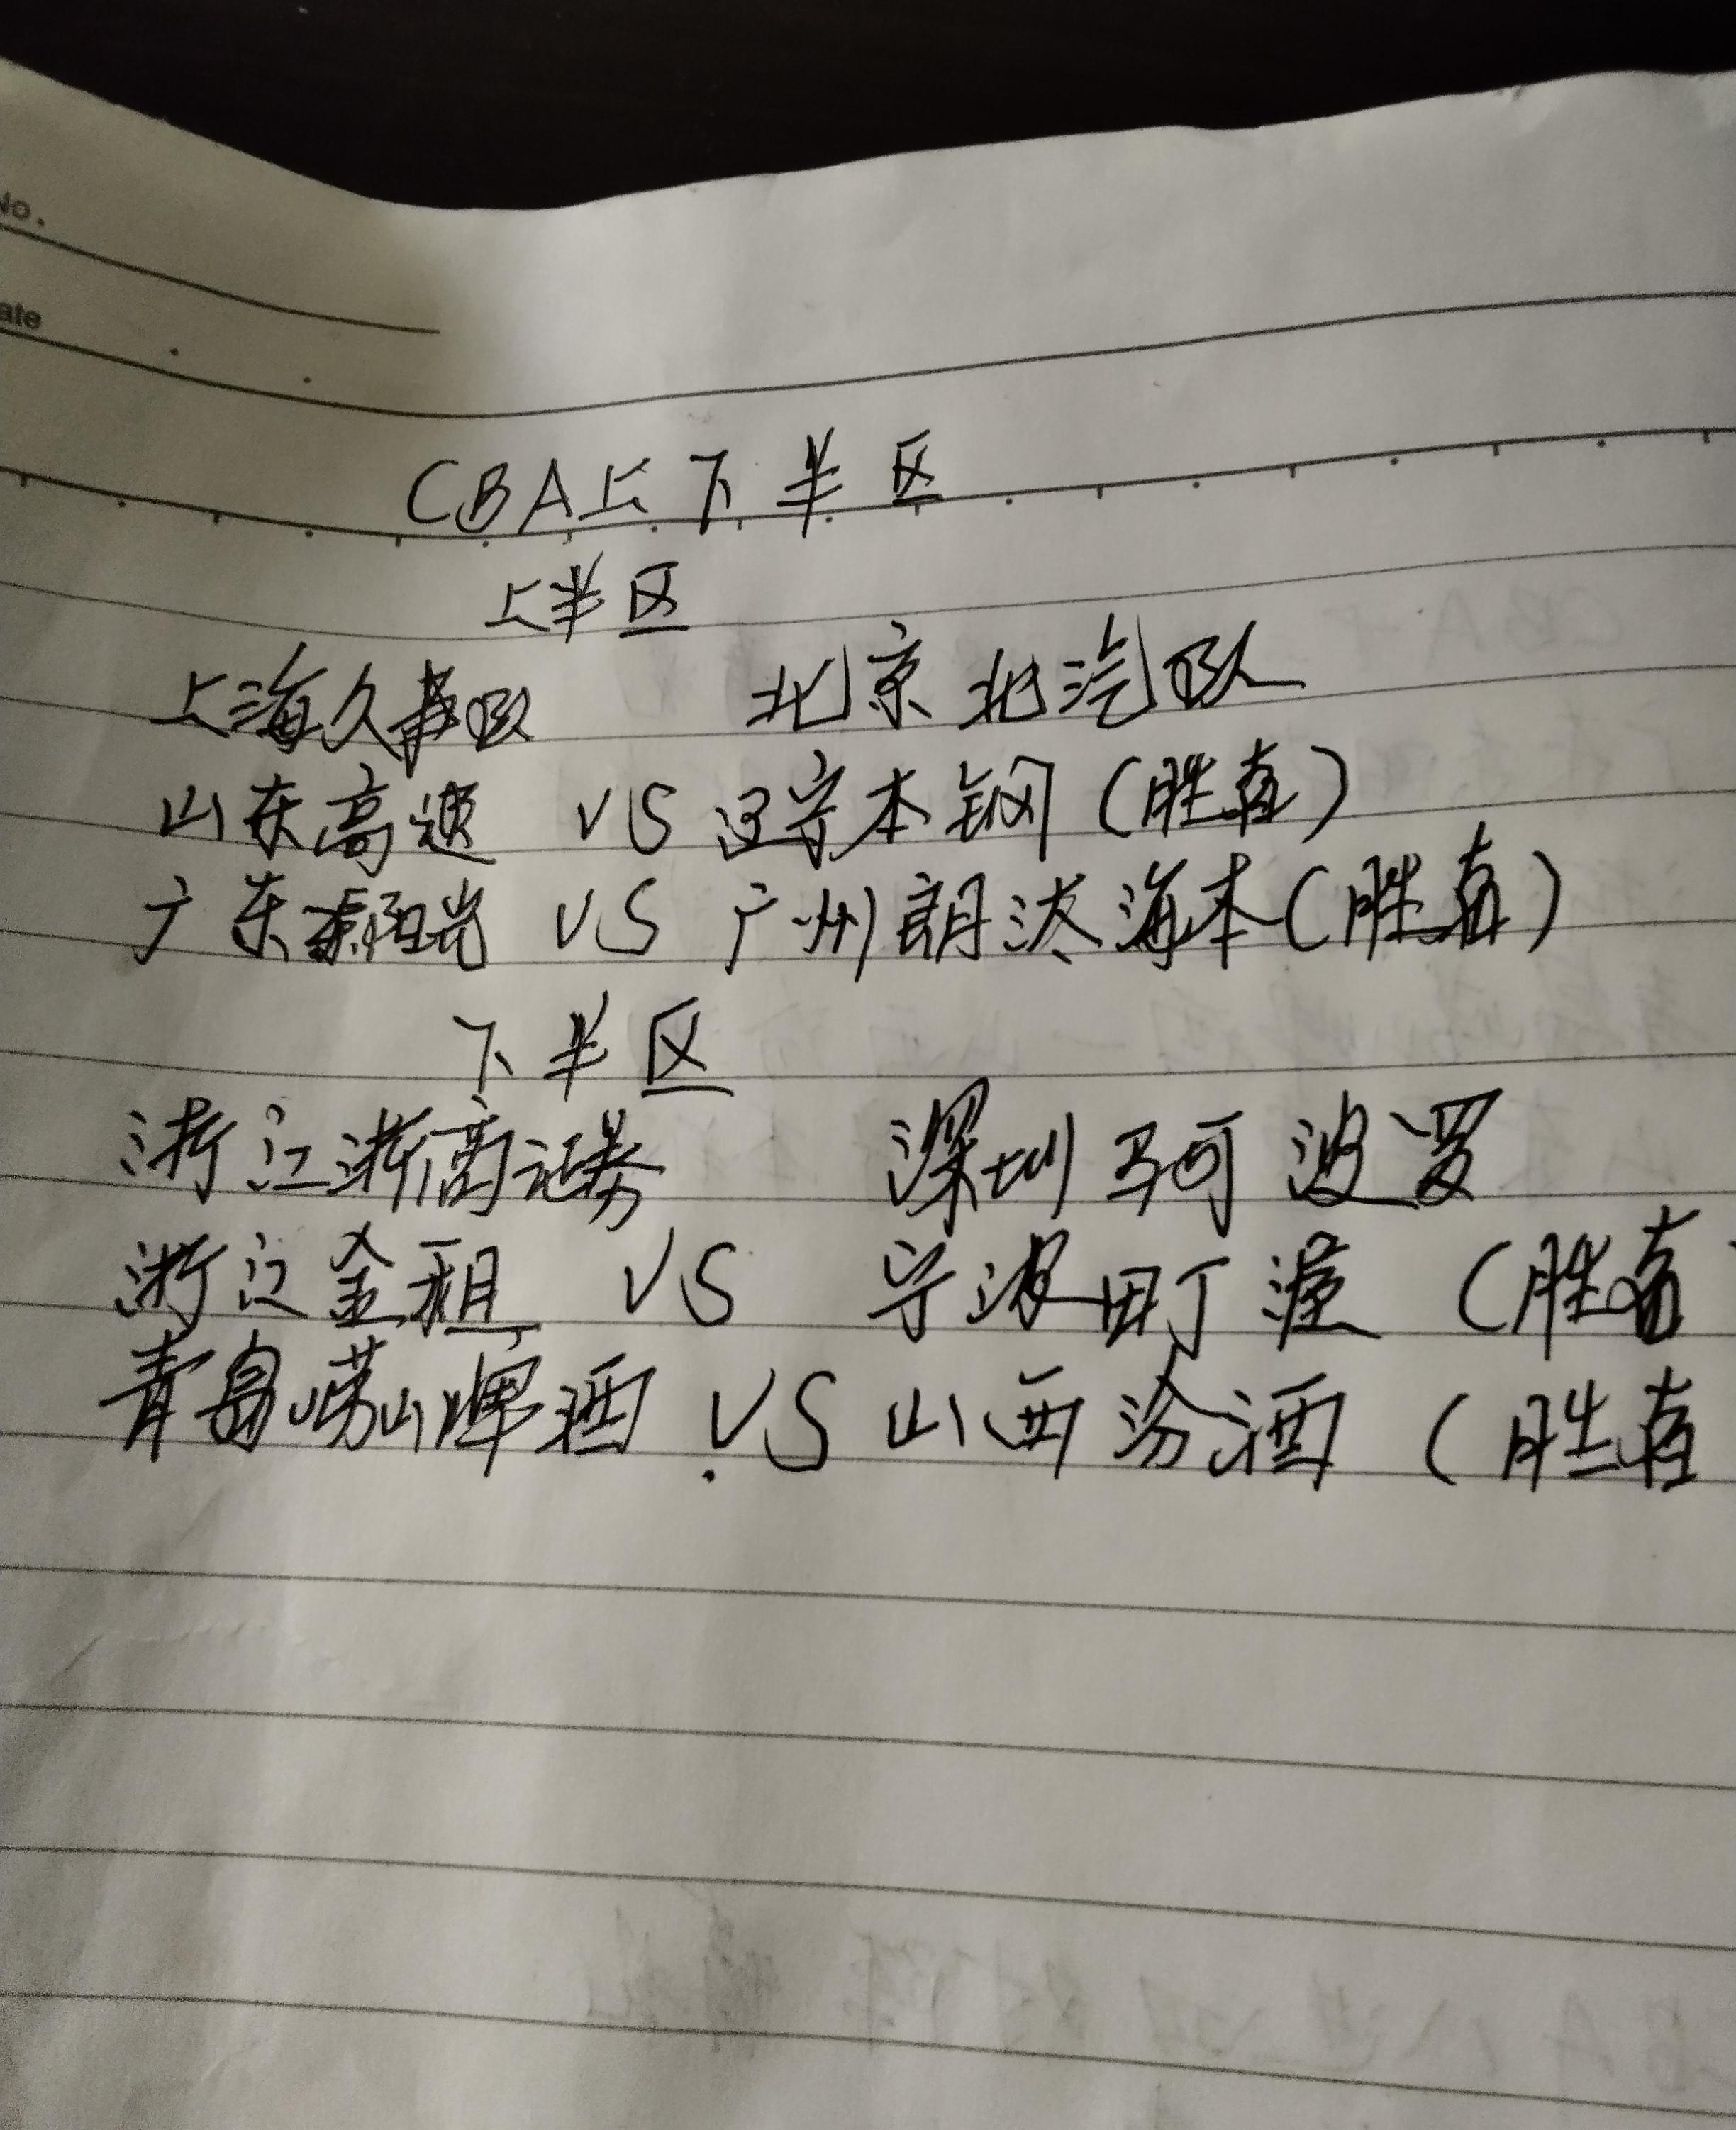 No.
ate
CBA上下半区
上半区
上海久事队 北京北汽队
山东高速 VS 辽宁本钢(胜者)
广东东阳光 VS 广州朗肽海本(胜者)
下半区
浙江浙商证券 深圳马可波罗
浙江金租 VS 宁波町渥 (胜者
青岛崂山啤酒 VS 山西汾酒 (胜者